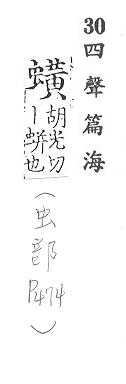 30四聲篇海
蟥
胡光切
丨蛢也
(虫部
P.474)